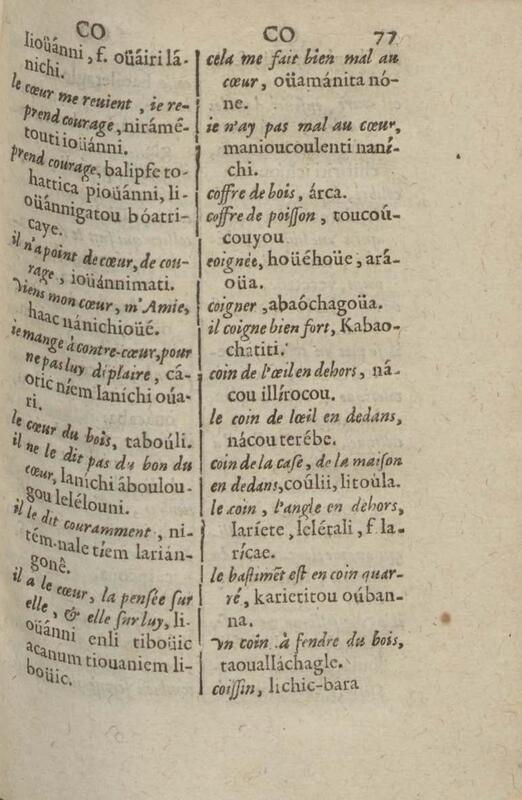 CO
lioüánni, f. oüáiri lá-
nichi.
le cœur me reuient, ie re-
prend courage, nirámê-
touti ioüánni.
prend courage, balipfe to-
hattica pioüánni, li-
oüánnigatou bóatri-
caye.
il n'a point de cœur, de cou-
rage, ioüánnimati.
Viens mon cœur, m'Amie,
haac nánichioüé.
ie mange à contre-cœur, pour
ne pas luy diplaire, cá-
otic níem laníchi oüa-
ri.
le cœur du bois, taboúli.
il ne le dit pas du bon du
cœur, laníchi áboulou-
gou lelélouni.
il le dit couramment, ni-
tém-nale tíem larián-
gonê.
il a le cœur, la pensée sur
elle, & elle sur luy, li-
oüánni enli tiboüic
acanum tiouaniem li-
boüic.
CO 77
cela me fait bien mal au
cœur, oüamánita nó-
ne.
ie n'ay pas mal au cœur,
manioucoulenti naní-
chi.
coffre de bois, árca.
coffre de poisson, toucoú-
couyou
coignée, hoüéhoüe, ará-
oüa.
coigner, abaóchagoüa.
il coigne bien fort, Kabao-
chatiti.
coin de l'œil en dehors, ná-
cou illírocou.
le coin de lœil en dedans,
nácou terébe.
coin de la case, de la maison
en dedans, coúlii, litoúla.
le coin, l'angle en dehors,
laríete, lelétali, f. la-
rícae.
le bastimẽt est en coin quar-
ré, karietitou oúban-
na.
Vn coin à fendre du bois,
taouálláchagle.
coissin, lichic-bara